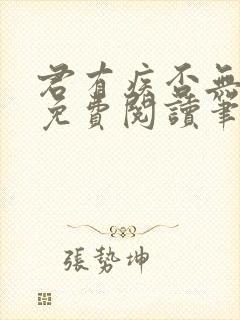 君有疾否無
免費閱讀筆
張勢坤